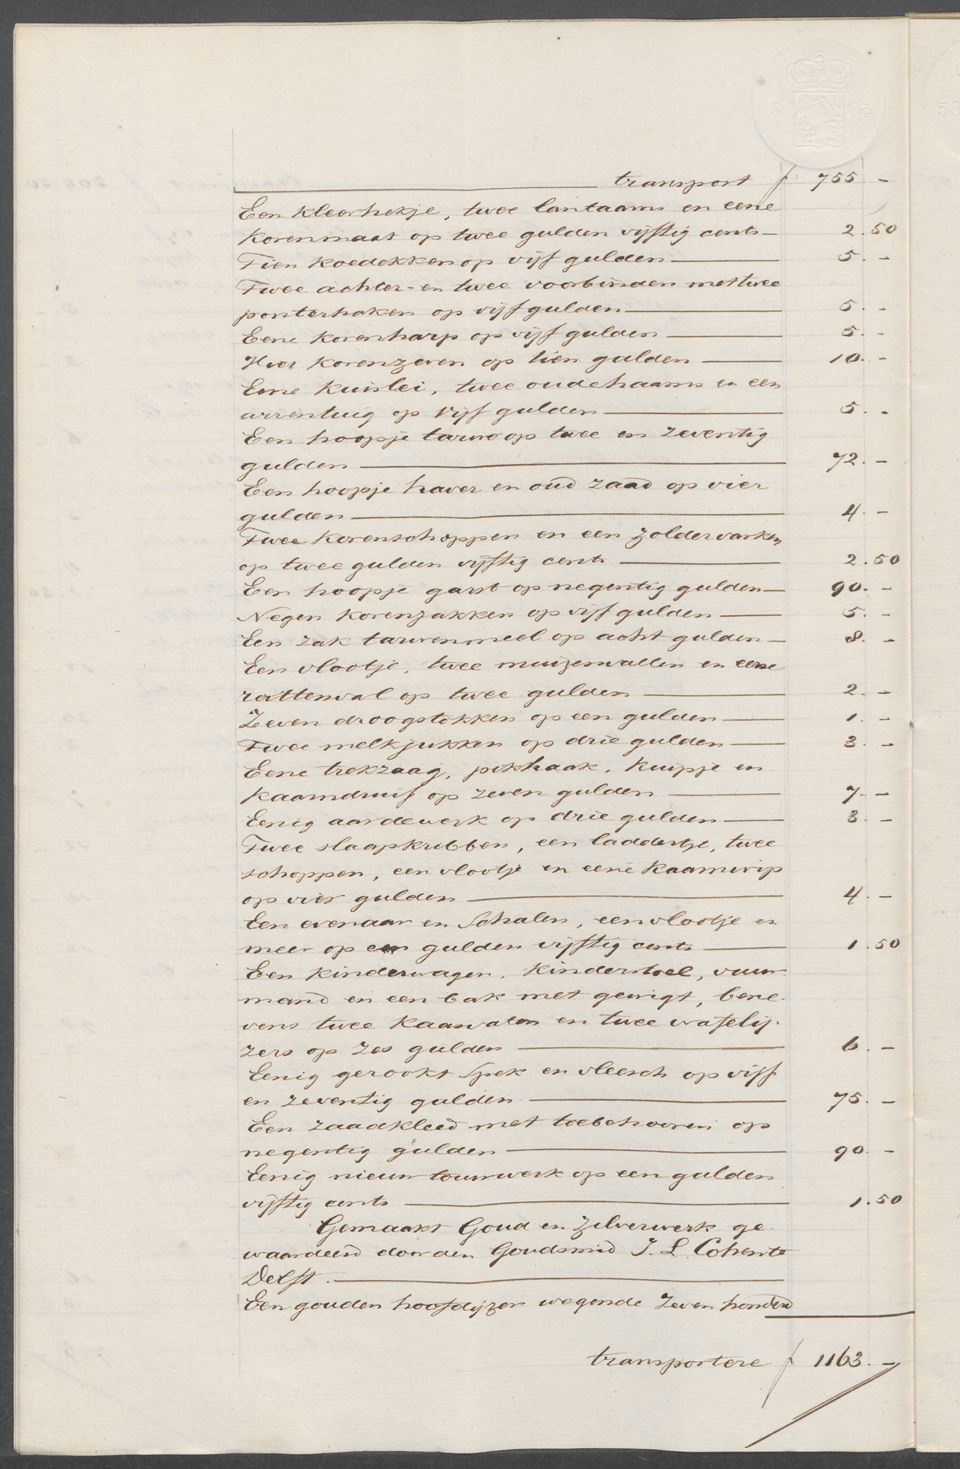 transport f 755. -
Een kleerhekje, twee lantaarns en eene
korenmaat op twee gulden vijftig cents 2.50
Tien koedekken op vijf gulden 5. -
Twee achter- en twee voorbinden met twee
ponterhaken op vijf gulden 5. -
Eene korenharp op vijf gulden 5. -
Vier korenzeven op tien gulden 10. -
Eene kuislei, twee oude haams en een
arrentuig op vijf gulden 5. -
Een hoopje tarwe op twee en zeventig
gulden 72. -
Een hoopje haver en oud zaad op vier
gulden 4. -
Twee korenschoppen en een zoldervarken
op twee gulden vijftig cents 2.50
Een hoopje garst op negentig gulden 90. -
Negen korenzakken op vijf gulden 5. -
Een zak tarwenmeel op acht gulden 8. -
Een vlootje, twee muizenvallen en eene
rattenval op twee gulden 2. -
Zeven droogstokken op een gulden 1. -
Twee melkjukken op drie gulden 3. -
Eene trekzaag, pikhaak, kuipje en
kaamdruif op zeven gulden 7. -
Eenig aardewerk op drie gulden 3. -
Twee slaapkribben, een laddertje, twee
schoppen, een vlootje en eene
op vier gulden 4. -
Een evenaar en schalen, een vlootje en
meer op een gulden vijftig cents 1.50
Een kinderwagen, kinderstoel, vuur-
mand en een bak met gewigt, bene-
vens twee kaasvaten en twee wafelij-
zers op zes gulden 6. -
Eenig gerookt spek en vleesch op vijf
en zeventig gulden 75. -
Een zaadkleed met toebehooren op
negentig gulden 90. -
Eenig nieuw touwwerk op een gulden
vijftig cents 1.50
Gemaakt Goud en Zilverwerk ge-
waardeerd door den Goudsmid J. L. Cohen te
Delft.
Een gouden hoofdijzer wegende zeven honderd
transportere f 1163. -